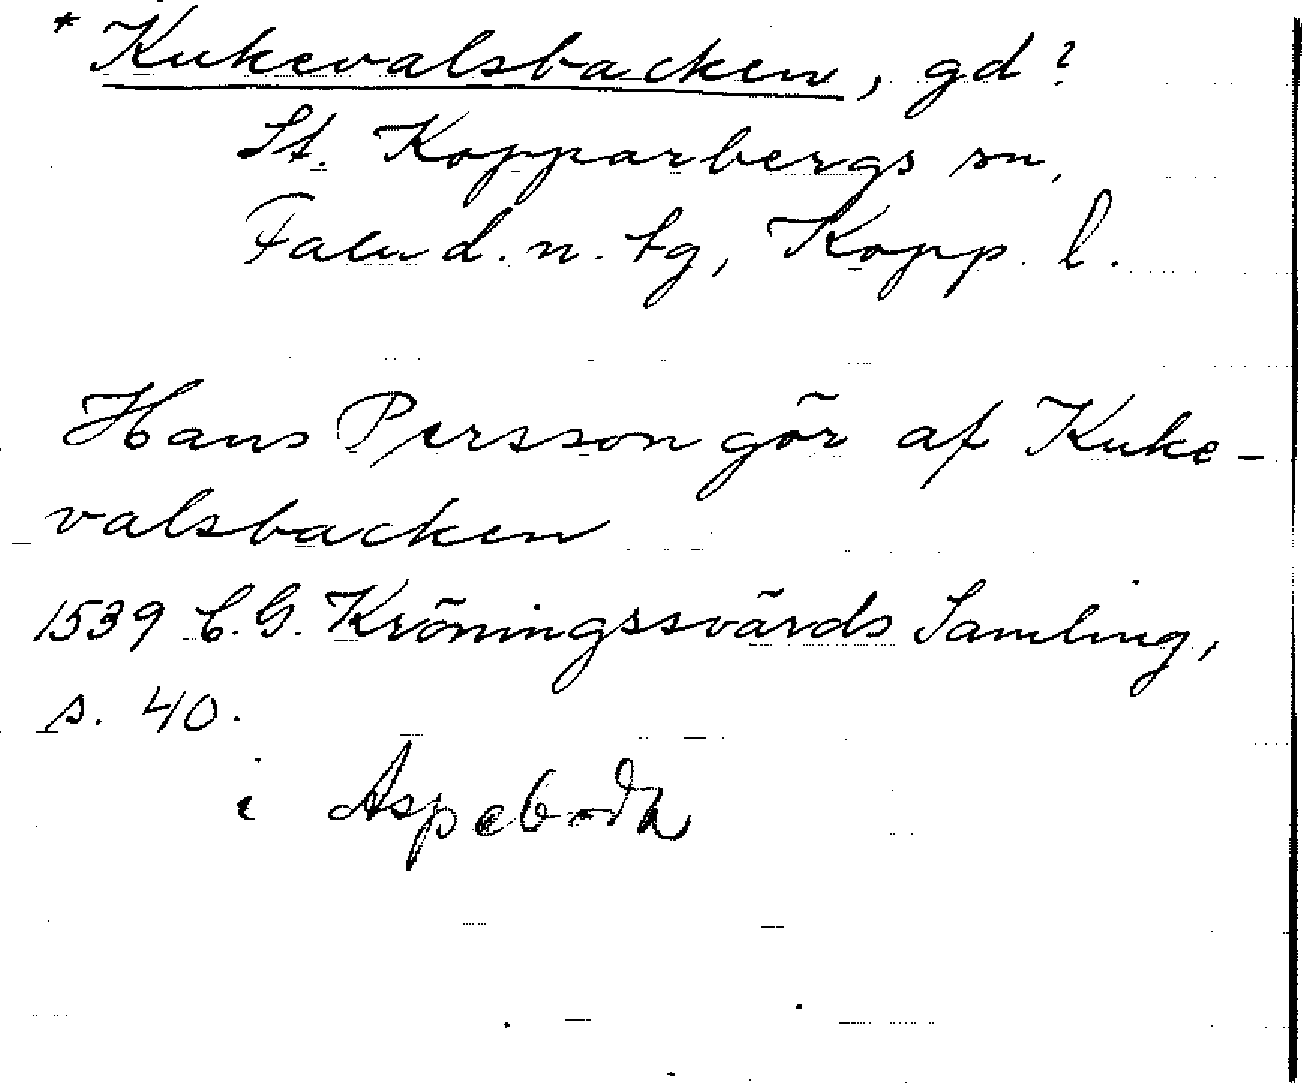 * Kukevalsbacken, gd?
St. Kopparbergs sn,
Falu d. n. tg, Kopp. l.
Hans Persson gör af Kuke-
valsbacken
1539 C.G. Kröningssvärds Samling,
s. 40.
i Aspeboda